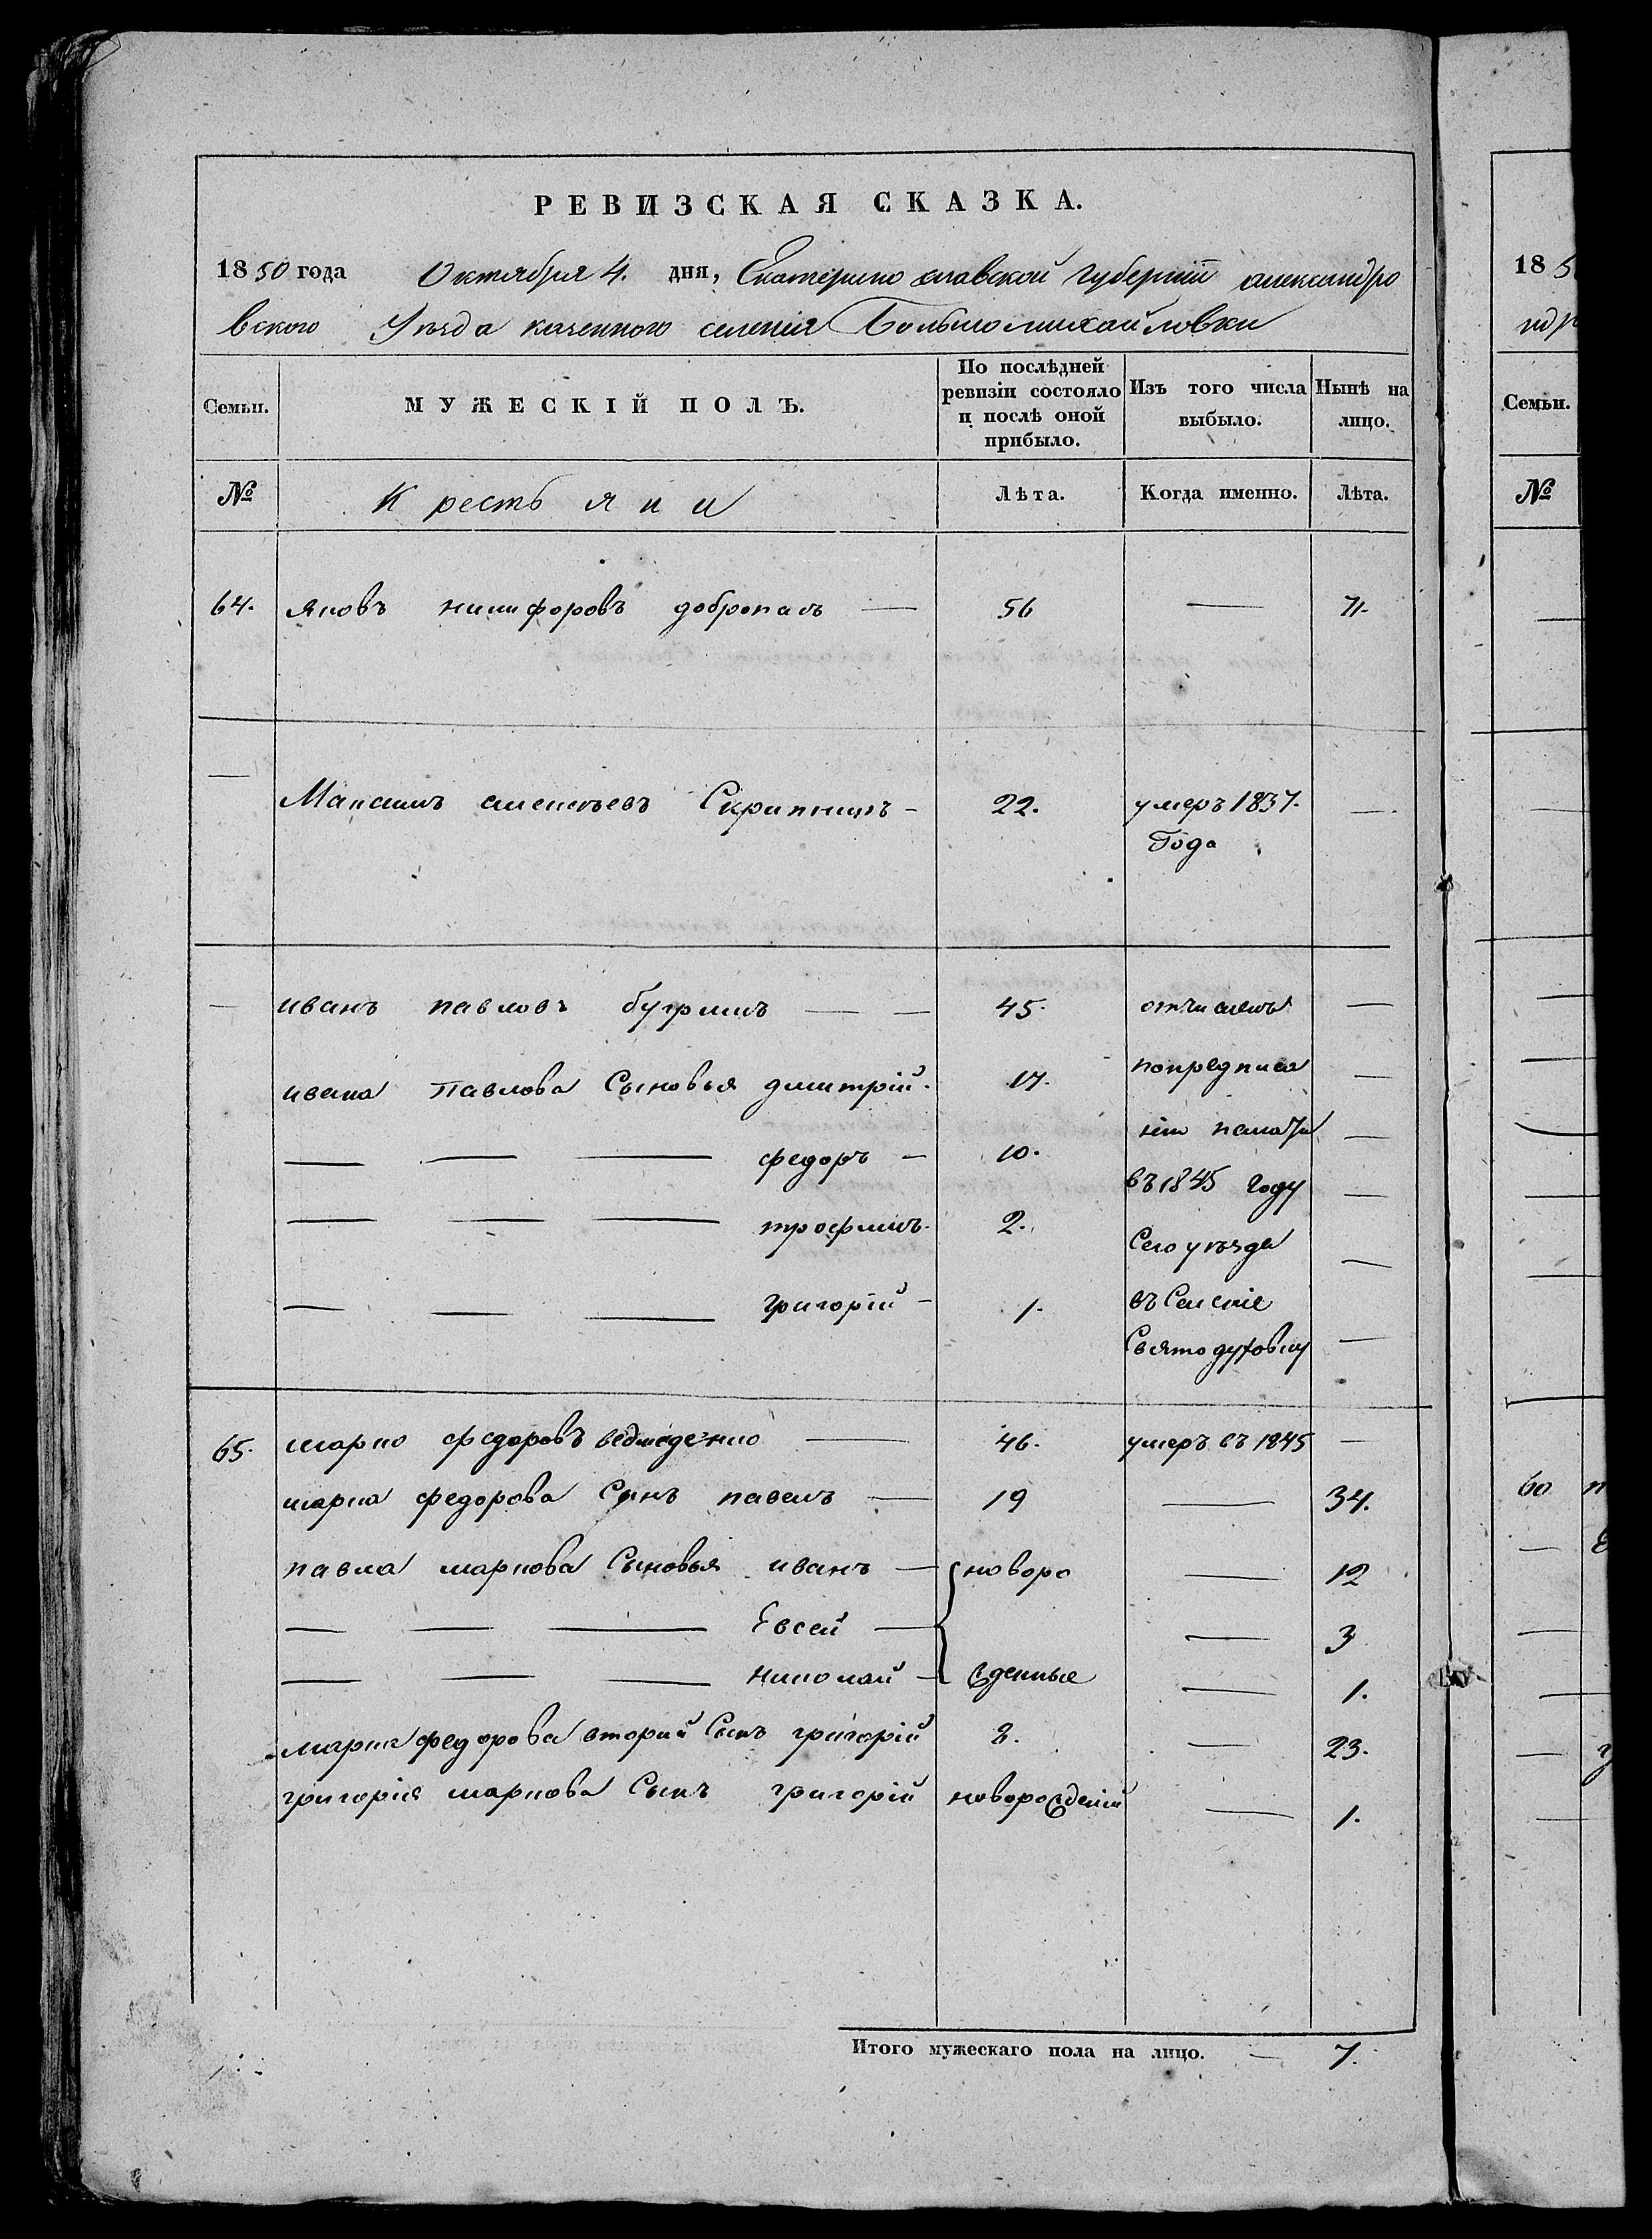 РЕВИЗСКАЯ СКАЗКА.
1850 года Октября 4. дня, Екатерино славской губерніи александро
вского Уѣзда казенного селенія Большомихайловки
Семьи. МУЖЕСКІЙ ПОЛЪ. По послѣдней ревизіи состояло и послѣ оной прибыло. Изъ того числа выбыло. Нынѣ на лицо.
№ Крестьяни Лѣта. Когда именно. Лѣта.
64. Яковъ никифоровъ добропасъ — 56 — 71.
— Максимъ алексѣевъ Скрипникъ — 22. умеръ 1837. —
Года
— иванъ павловъ бугримъ — — 45. отчисленъ —
ивана павлова Сыновья дмитрій. 17. попредписа —
— — — федоръ — 10. нію палаты —
въ 1845 году —
— — — трофимъ. 2. Сего уѣзда —
— — — григорій — 1. въ Селеніе
Святодуховку —
65. марко федоровъ ведмеденко — 46. умеръ въ 1845 —
марка федорова Сынъ павелъ — 19 — 34.
павла маркова Сыновья иванъ — новоро — 12
— — — Евсей — — 3
— — — николай — жденные — 1.
марка федорова вторий Сынъ григорій 8. — 23.
григорія маркова Сынъ григорій новорожденій — 1.
Итого мужескаго пола на лицо. — 7.
18 5
Семьи.
№
60